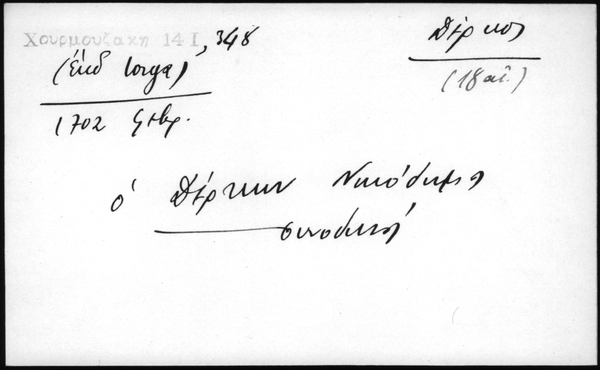 Χουρμουζάκη 14 I, 348
(ἐκδ Iorga)
1702 φεβρ.
Δέρκοι
(18 αἰ.)
ὁ Δέρκων Νικόδημος
συνοδικός